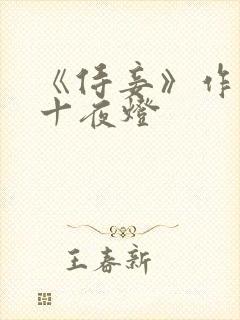 《侍妾》作
十夜燈
王春新